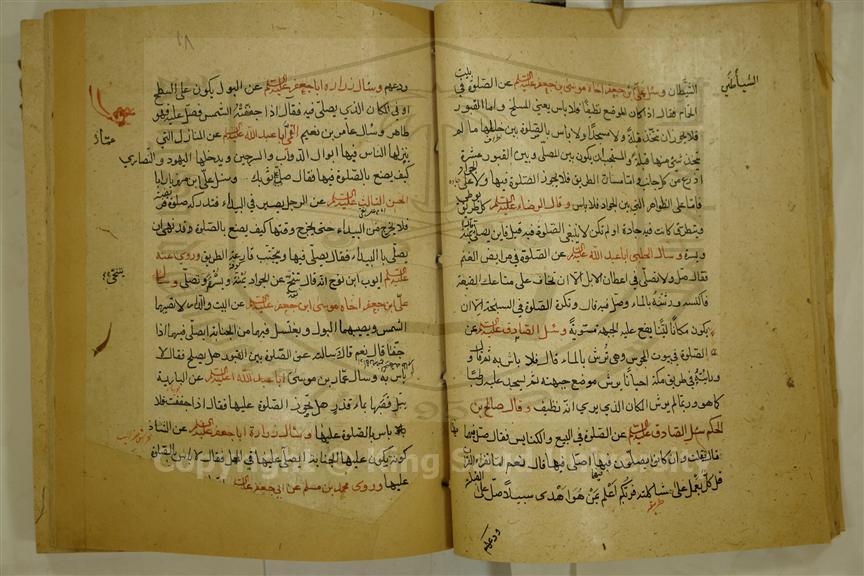 الشيطان وسئل علي بن جعفر اخاه موسى بن جعفر عليه السلام عن الصلوة في بيت
الحمام فقال اذا كان الموضع نظيفا فلا باس يعني المسلخ واما القبور
فلا يجوز ان تتخذ قبلة ولا مسجدا ولا باس بالصلوة بين خللها ما لم
يتخذ شئ منها قبلة والمستحب ان يكون بين المصلي وبين القبور عشرة
اذرع من كل جانب واما مسان الطريق فلا يجوز الصلوة فيها ولا على الجواد
فاما على الظواهر التي بين الجواد فلا باس وقال الرضا عليه السلام كل طريق يوطئ
ويتطرق كانت فيه جادة او لم تكن لا ينبغي الصلوة فيه قيل فاين يصلي قال يمنة
ويسرة وسال الحلبي ابا عبد الله عليه السلام عن الصلوة في مرابض الغنم
فقال صل ولا تصلي في اعطان الابل الا ان تخاف على متاعك الضيعة
فاكنسه ورشه بالماء وصل فيه قال وتكره الصلوة في السبخة الا ان
يكون مكانا لينا يقع عليه الجبهة مستوية وسئل الصادق عليه السلام عن
الصلوة في بيوت المجوس وهي ترش بالماء قال فلا باس به ثم قال
ورايته في طريق مكة احيانا يرش موضع جبهته ثم يسجد عليه رطبا
كما هو وربما لم يرش المكان الذي يرى انه نظيف وقال صالح بن
الحكم سئل الصادق عليه السلام عن الصلوة في البيع والكنايس فقال صل فيها
قال قلت وان كانوا يصلون فيها اصلي فيها قال نعم اما تقرء القران
قل كل يعمل على شاكلته فربكم اعلم بمن هو اهدى سبيلا صل على القبلة
ودعهم
ودعهم وسال زرارة ابا جعفر عليه السلام عن البول يكون على السطح
او في المكان الذي يصلى فيه فقال اذا جففته الشمس فصل عليه فهو
طاهر وسال عامر بن نعيم القمي ابا عبد الله عليه السلام عن المنازل التي
ينزلها الناس فيها ابوال الدواب والسرجين ويدخلها اليهود والنصارى
كيف يصنع بالصلوة فيها فقال صل على ثوبك وسئل علي بن مهزيار ابا
الحسن الثالث عليه السلام عن الرجل يصير في البيداء فتدركه صلوة فريضة
فلا يخرج من البيداء حتى يخرج وقتها كيف يصنع بالصلوة وقد نهى ان
يصلى بالبيداء فقال يصلي فيها ويجتنب قارعة الطريق وروى عنه
عليه السلام ايوب ابن نوح انه قال تتنحى عن الجواد يمنة ويسرة وتصلي وسال
علي بن جعفر اخاه موسى ابن جعفر عليه السلام عن البيت والدار لا يصيبها
الشمس ويصيبهما البول ويغتسل فيهما من الجنابة ايصلى فيهما اذا
جفا قال نعم قال وسالته عن الصلوة بين القبور هل يصلح فقال لا
باس به وسال عمار بن موسى ابا عبد الله عليه السلام عن البارية
يبل قصبها بماء قذر هل تجوز الصلوة عليها فقال اذا جففت فلا
باس بالصلوة عليها وسال زرارة ابا جعفر عليه السلام عن الشاذ
كونة يكون عليها الجنابة ايصلى عليها في المحمل فقال لا باس بالصلوة
عليها وروى محمد بن مسلم عن ابي جعفر عليه السلام
Copyright © King Saud University